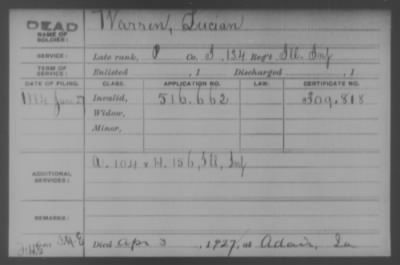 DEAD
NAME OF SOLDIER: Warren, Lucian
SERVICE: Late rank, P Co. I, 134 Reg't Ill. Inf
TERM OF SERVICE: Enlisted , 1 Discharged , 1
DATE OF FILING. CLASS. APPLICATION NO. LAW. CERTIFICATE NO.
June 27 Invalid, 516.662 309.818
Widow,
Minor,
ADDITIONAL SERVICES: A. 104 & H. 156, Ill, Inf
REMARKS:
Died Apr 3 , 1927, at Adair, Ia